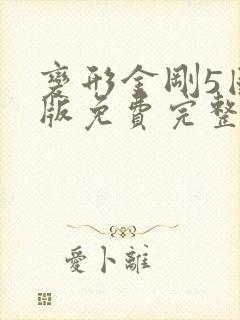 變形金剛5國
版免費完整
愛卜離